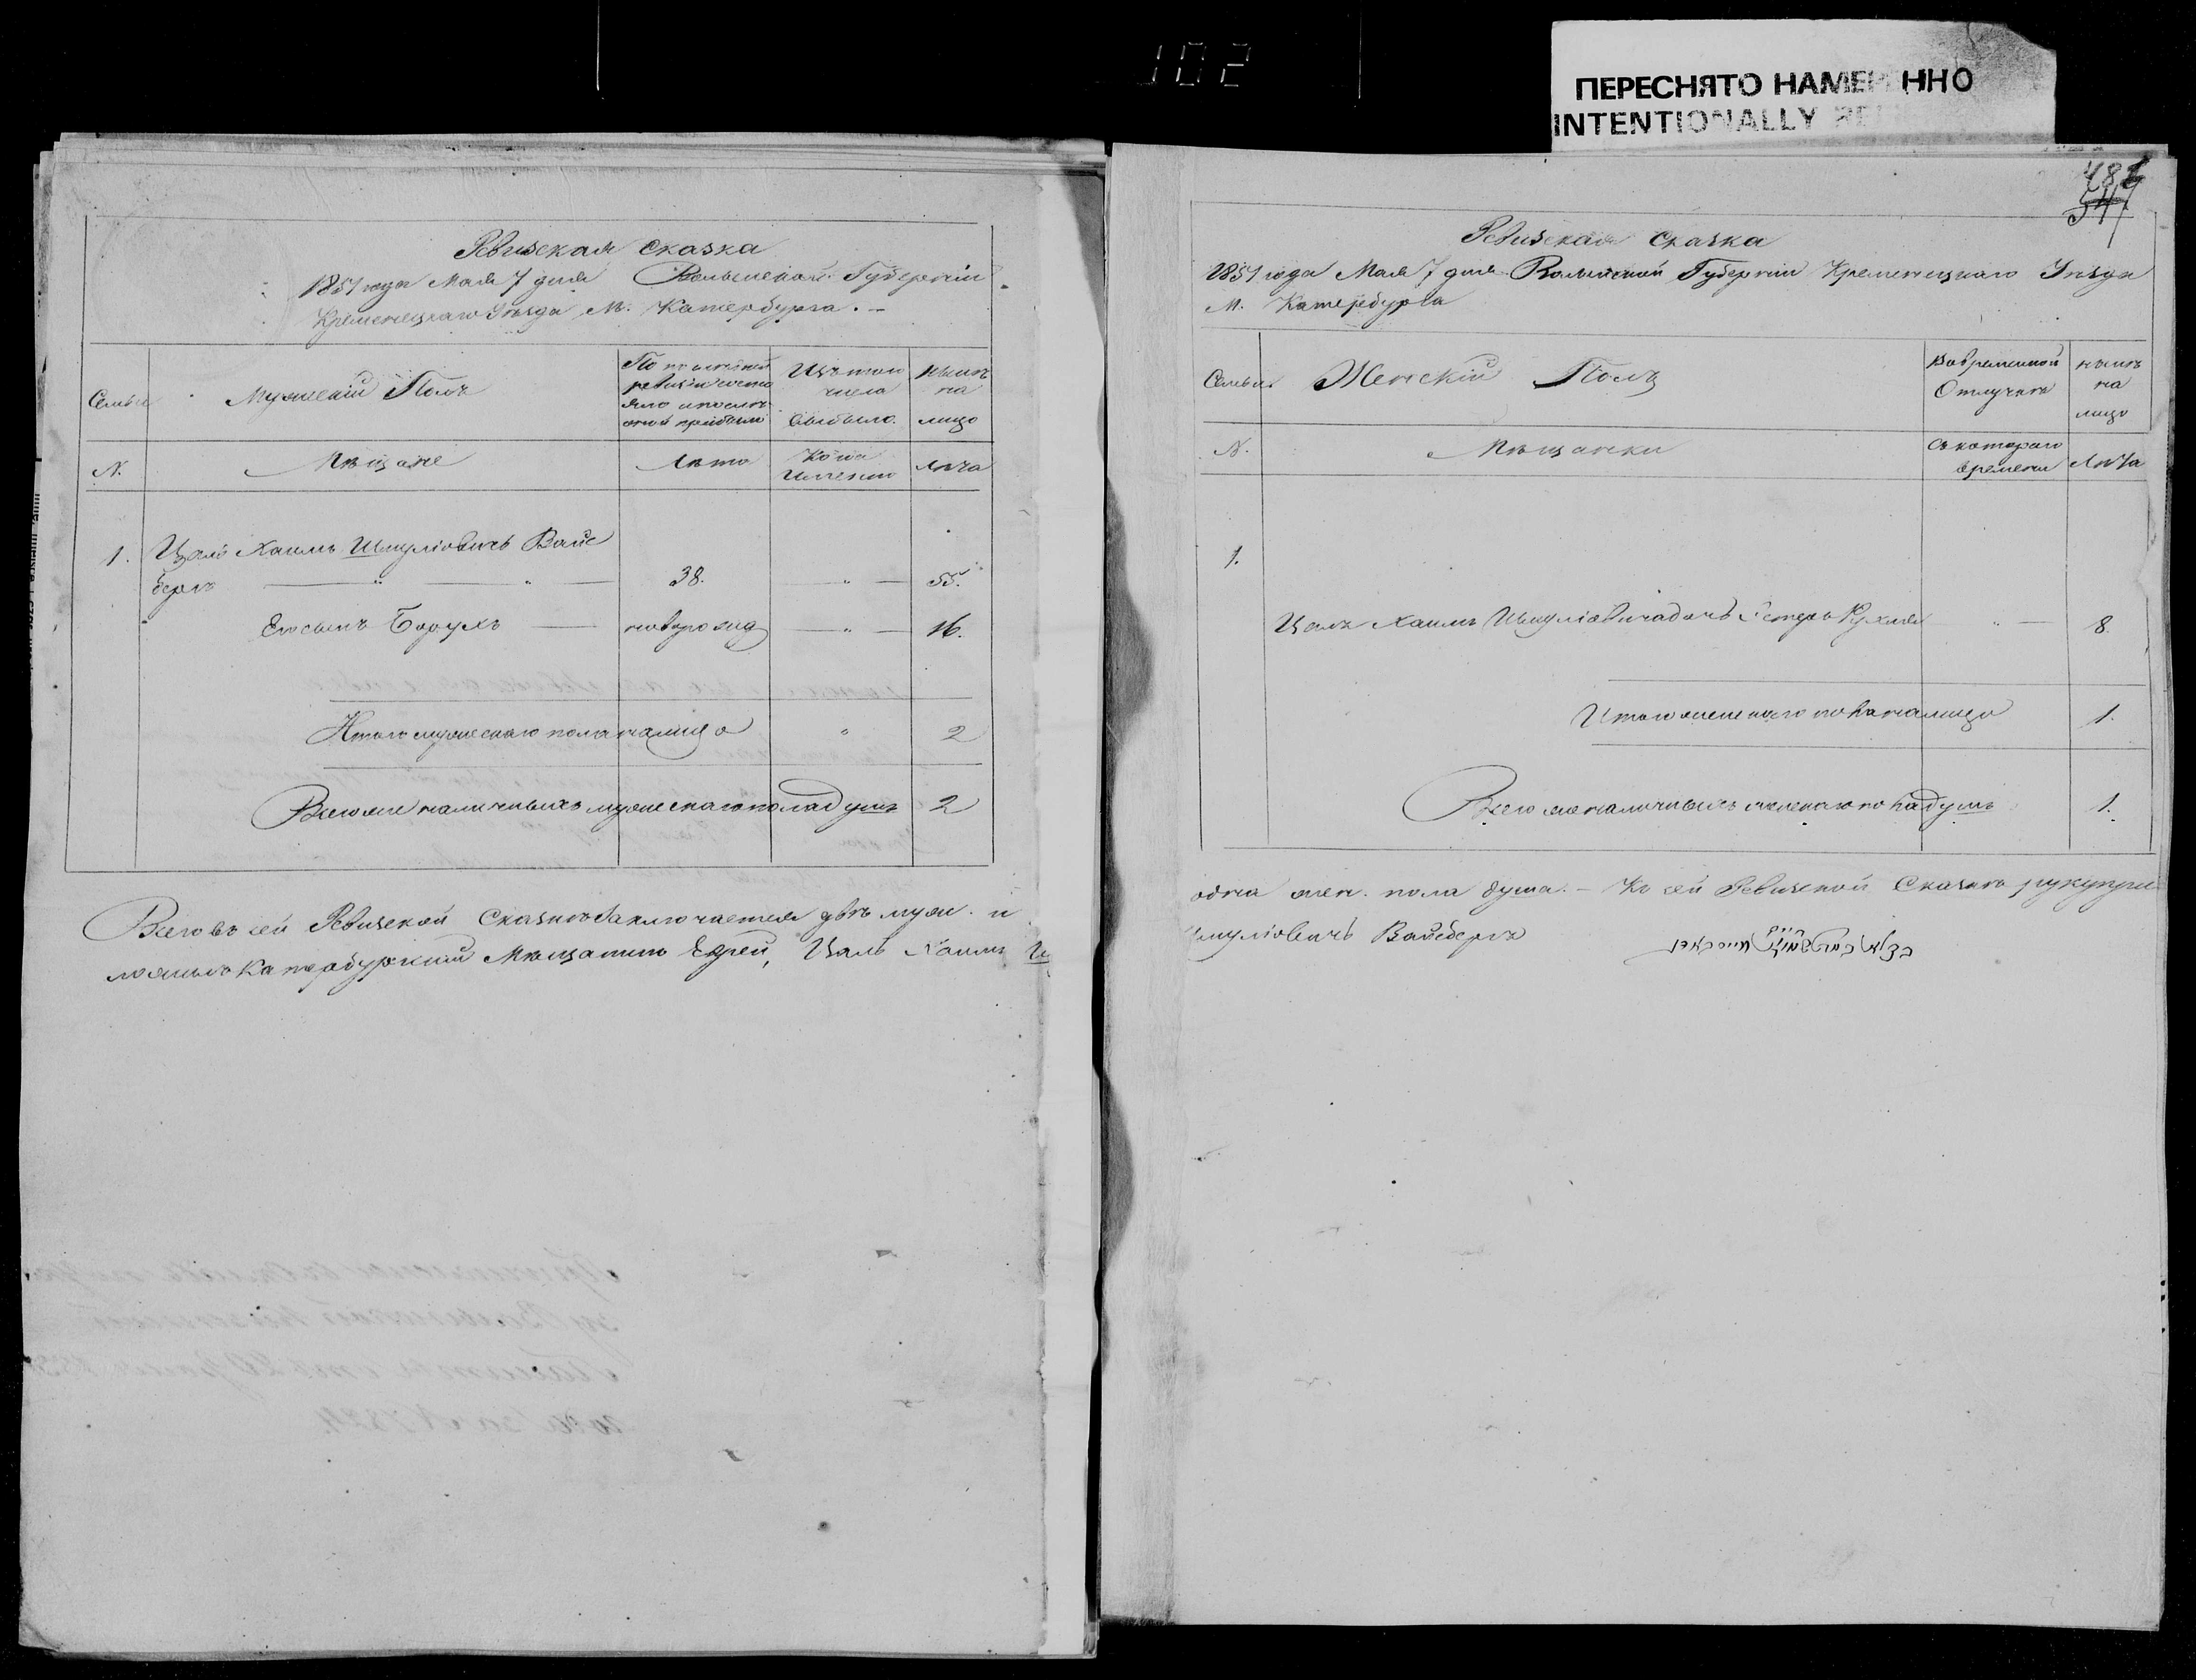 102
ПЕРЕСНЯТО НАМЕР ННО
INTENTIONALLY RE
Ревизская сказка
1851 года Мая 7 дня Волынской Губерніи
Кременецкаго Уѣзда М. Катербурга. –
Семьи
Мужескій Полъ
По послѣдней
ревизіи состо
яло и послѣ
оной прибыло
Изъ того
числа
выбыло.
Нынѣ
на
лицо
N.
Мѣщане
Лѣта
Когда
Именно
Лѣта
1.
Цаль Хаимъ Шмуліовичъ Вайс
бергъ
38.
55.
Его сынъ Борухъ
новорожд
16.
Итого мужескаго пола налицо
2
Всего же наличныхъ мужескаго пола душъ
2
Всего въ сей Ревизской Сказкѣ Заключается двѣ муж. и
ложилъ Катербургский Мѣщанинъ Еврей, Цаль Хаимъ Ш
482
547
Ревизская Сказка
1851 года Мая 7 дня Волынской Губерніи Кременецкаго Уѣзда
М. Катербурга
Семьи
Женскій Полъ
Во временной
Отлучкѣ
нынѣ
на
лицо
N.
Мѣщанки
Съ котораго
времени
Лѣта
1.
Цаль Хаимъ Шмуліовича дочь Естеръ Рухля
8.
Итого женскаго пола налицо
1.
Всего же наличныхъ женскаго пола душъ
1.
одна жен. пола душа. – Къ сей Ревизской Сказкѣ руку при
Шмуліовичъ Вайсбергъ